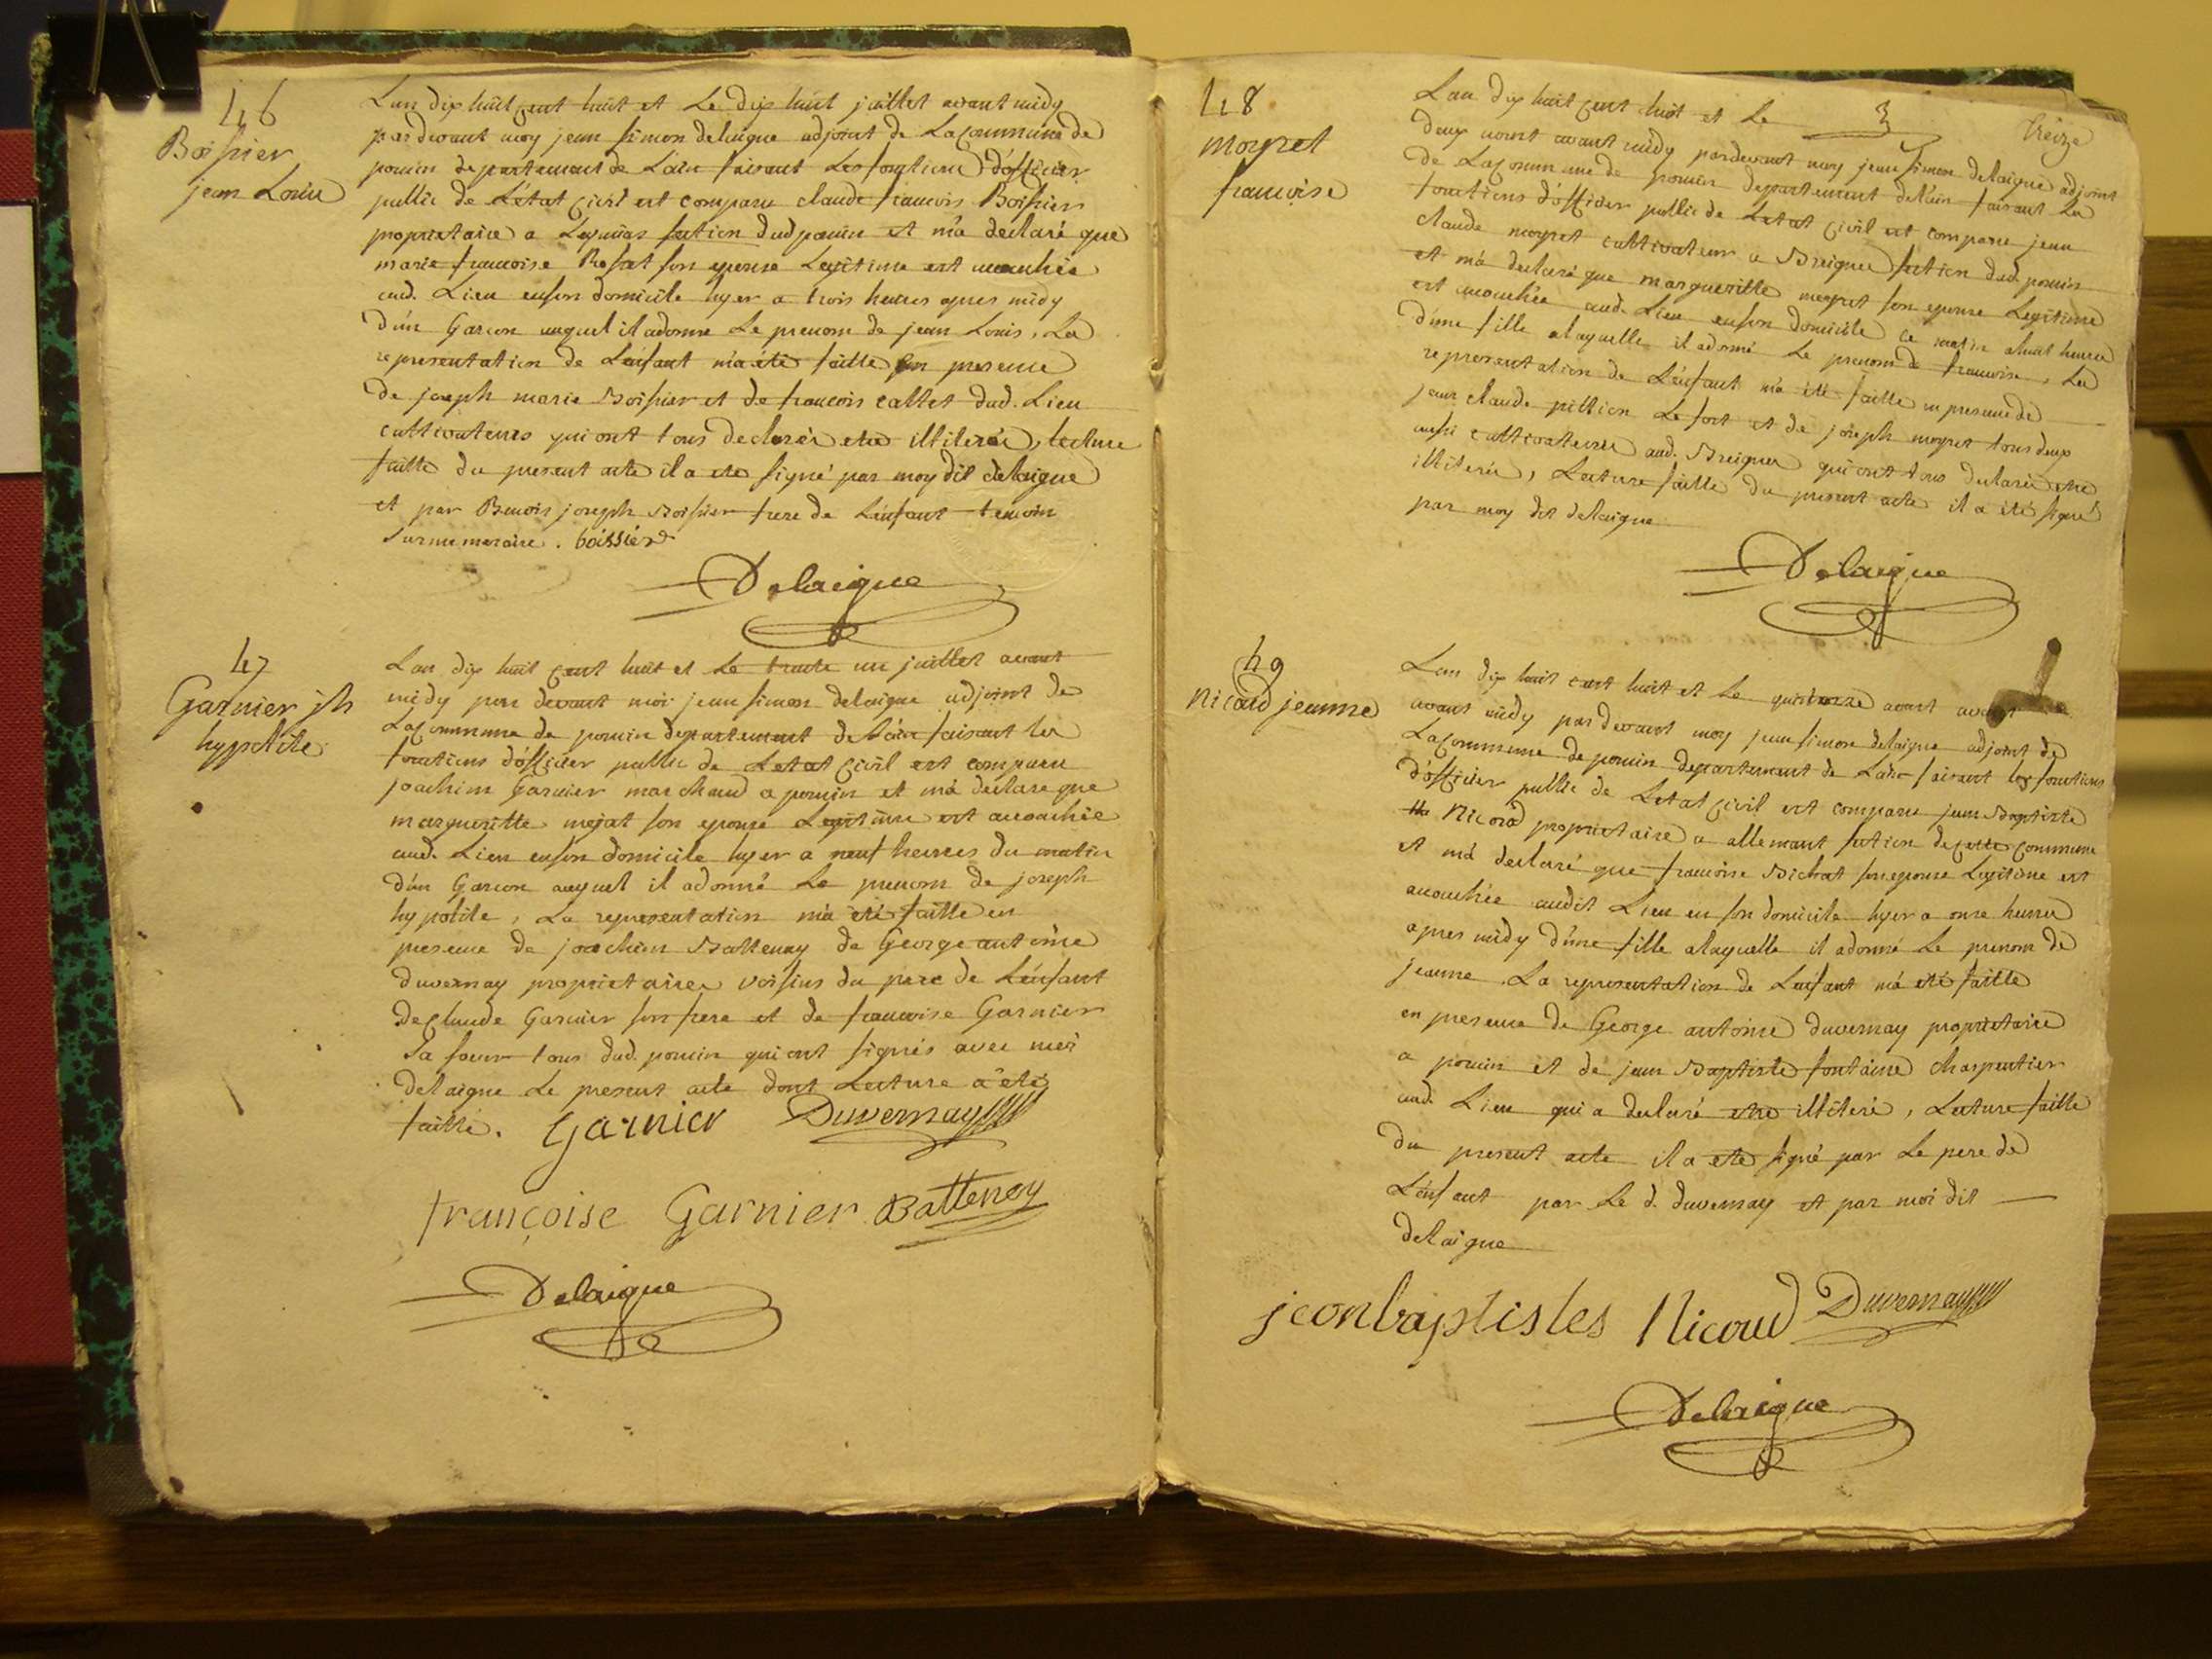 46
Boissier
jean Louis
L'an dix huit cent huit et Le dix huit juillet avant midy
par devant moy jean simon delaigue adjoint de La Commune de
poncin departement de L'ain faisant Les fonctions d'officier
public de L'état Civil est comparu claude francois Boissier
proprietaire a section dud poncin et m'a declaré que
marie francoise son epouse Legitime est accouchée
aud. Lieu en son domicile hyer a trois heures apres midy
d'un Garcon auquel il a donné Le prenom de jean Louis, La
representation de L'enfant m'a été faitte en presence
de joseph marie Boissier et de francois callet dud. Lieu
cultivateurs qui ont tous declarés etre illiterés, lecture
faitte du present acte il a ete signé par moy dit delaigue
et par Benois joseph Boissier frere de L'enfant temoin
surnumeraire. boissier
Delaigue
47
Garnier jh
hypolite
L'an dix huit cent huit et Le trente un juillet avant
midy par devant moi jean simon delaigue adjoint de
La Commune de poncin departement de L'ain faisant les
fonctions d'officier public de L'etat Civil est comparu
joachim Garnier marchand a poncin et m'a declare que
margueritte mejat son epouse Legitime est accouchée
aud. Lieu en son domicile hyer a neuf heures du matin
d'un Garcon auquel il a donné Le prenom de joseph
hypolite, La representation m'a été faitte en
presence de joachim Battenay de George antoine
duvernay proprietaires voisins du pere de L'enfant
de Claude Garnier son frere et de francoise Garnier
sa soeur tous dud. poncin qui ont signés avec moi
delaigue Le present acte dont Lecture a été
faitte. Garnier Duvernay
françoise Garnier Battenay
Delaigue
treize
48
moyret
francoise
L'an dix huit cent huit et Le
deux aoust avant midy pardevant moy jean simon delaigue adjoint
de La Commune de poncin departement de l'ain faisant Les
fonctions d'officier public de L'etat Civil est comparu jean
claude moyret cultivateur a Breignes section dud. poncin
et m'a declaré que margueritte moyret son epouse Legitime
est accouchée aud. Lieu en son domicile ce matin a huit heures
d'une fille a laquelle il a donné Le prenom de francoise, La
representation de L'enfant m'a été faitte en presence de
jean claude pittion Le fort et de joseph moyret tous deux
aussi cultivateurs aud. Breignes qui ont tous declarés etre
illiterés, Lecture faitte du present acte il a été signé
par moy dit delaigue
Delaigue
49
Nicoud jeanne
L'an dix huit cent huit et Le quatorze aoust
avant midy par devant moy jean simon delaigue adjoint de
La Commune de poncin departement de L'ain faisant les fonctions
d'officier public de L'etat Civil est comparu jean Baptiste
Nicoud proprietaire a allemant section de cette commune
et m'a declaré que francoise Bichat son epouse Legitime est
accouchée audit Lieu en son domicile hyer a onze heures
apres midy d'une fille a laquelle il a donné Le prenom de
jeanne. La representation de L'enfant m'a été faitte
en presence de George antoine duvernay proprietaire
a poncin et de jean Baptiste fontaine charpentier
aud. Lieu qui a declaré etre illiteré, Lecture faitte
du present acte il a ete signé par Le pere de
L'enfant par Le d. duvernay et par moi dit
delaigue
jeonbaptistes Nicoud Duvernay
Delaigue